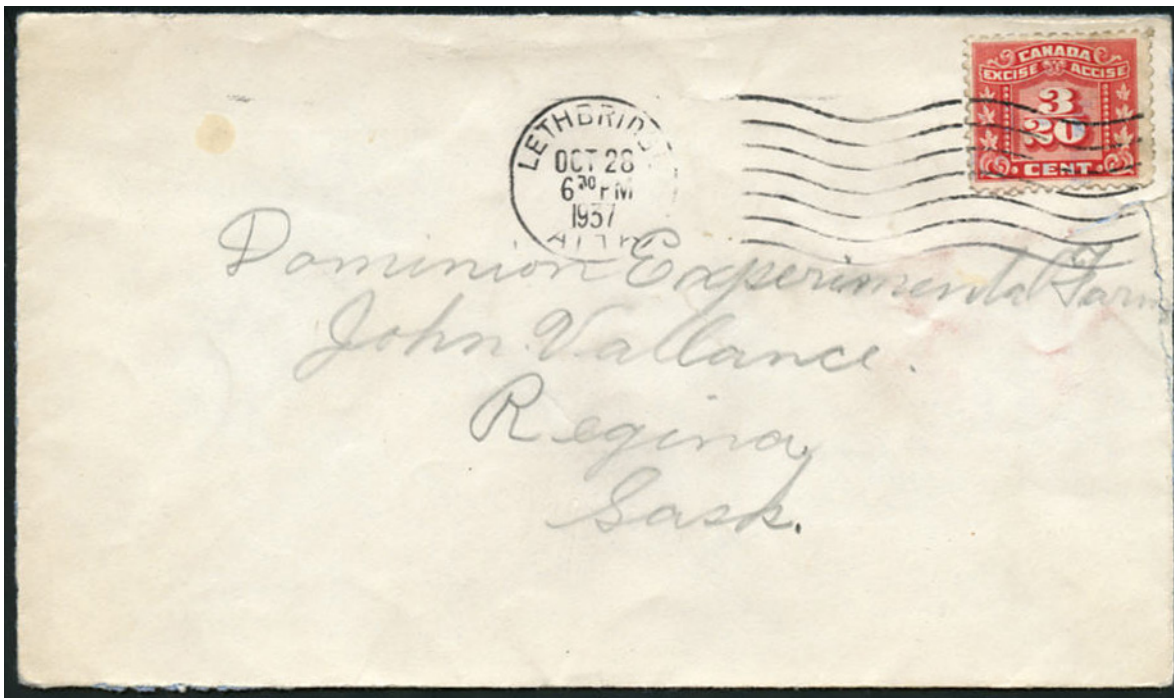 CANADA
EXCISE ACCISE
3
20
CENT
LETHBRIDGE
OCT 28
6 30 PM
1937
ALTA
Dominion Experimental Farm
John Vallance.
Regina,
Sask.